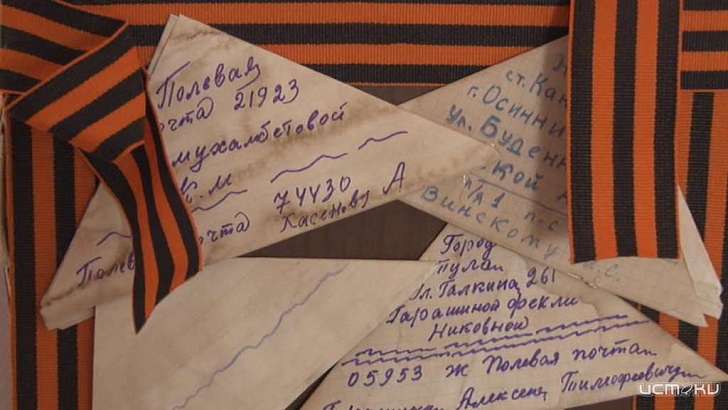 Полевая
очта 21923
мухамбетовой
К. М
очта 74430
Касенов А
Полев
ст. Кан
г. Осинни
ул. Буденн
кой
п/я 1 п-с
Винскому
Город
пулан
Гл. Галкина 261
Гарашиной Фекли
Никовной
05953 Ж Полевая почта
Алексея Тимофеевич
ИСТОКИ